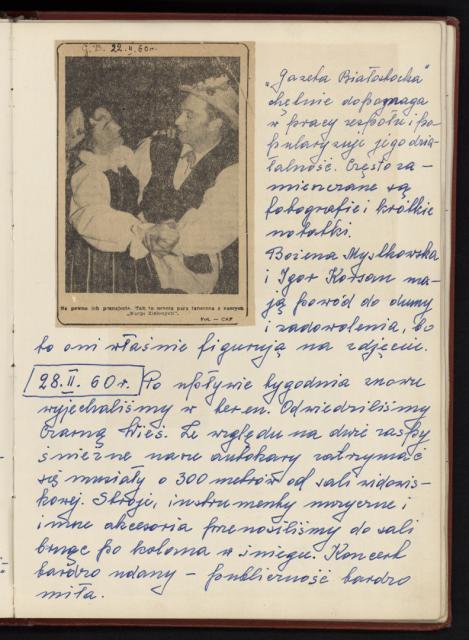 G.B. 22.II.60r.
Na pewno ich poznajecie. Tak to urocza para taneczna z naszych
„Kurpi Zielonych".
Fot. — CAF
„Gazeta Białostocka"
chętnie dopomaga
w pracy zespołu i po-
pularyzuje jego dzia-
łalność. Często za-
mieszczane są
fotografie i krótkie
notatki.
Bożena Myśtkowska
i Igor Korsan ma-
ją powód do dumy
i zadowolenia, bo
to oni właśnie figurują na zdjęciu.
28.II. 60r. Po upływie tygodnia znowu
wyjechaliśmy w teren. Odwiedziliśmy
Czarną Wieś. Ze względu na duże zaspy
śnieżne nasze autokary zatrzymać
się musiały o 300 metrów od sali widowis-
kowej. Stroje, instrumenty muzyczne i
inne akcesoria przenosiliśmy do sali
brnąc po kolana w śniegu. Koncert
bardzo udany – publiczność bardzo
miła.